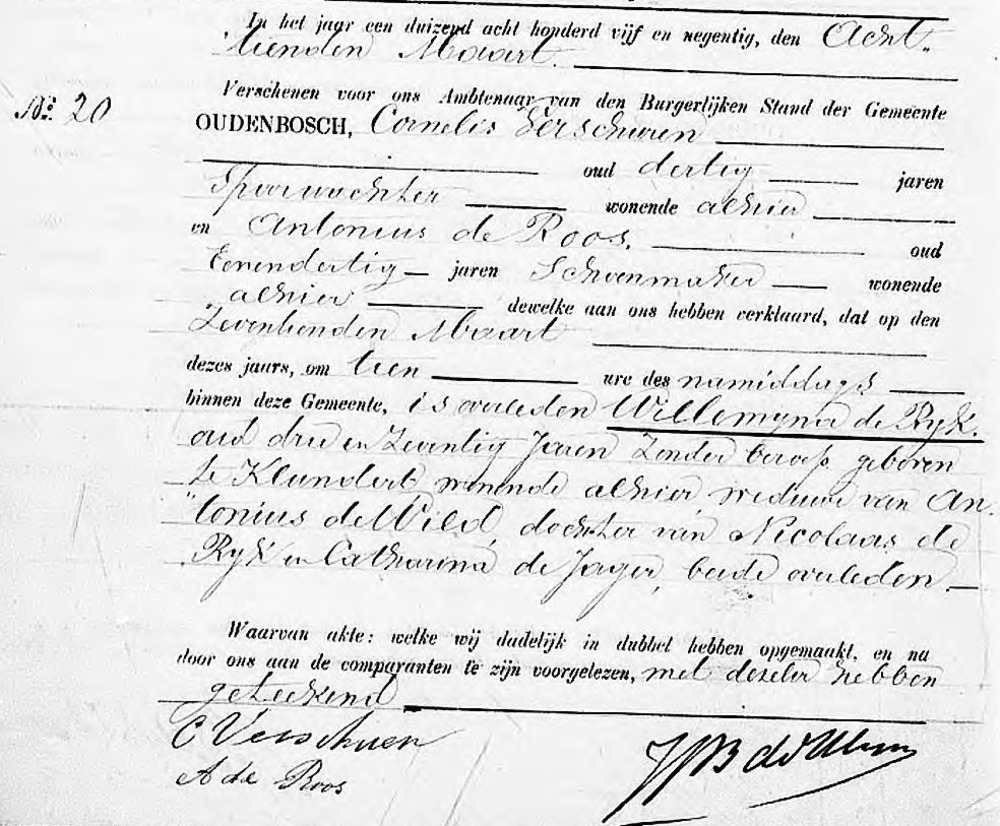 In het jaar een duizend acht honderd vijf en negentig, den Acht-
tienden Maart.
Verschenen voor ons Ambtenaar van den Burgerlijken Stand der Gemeente
No. 20
OUDENBOSCH, Cornelis Verschuren
oud dertig jaren
Spoorwachter wonende alhier
en Antonius de Roos, oud
Eenendertig jaren Schoenmaker wonende
alhier dewelke aan ons hebben verklaard, dat op den
Zeventienden Maart
dezes jaars, om tien ure des namiddags
binnen deze Gemeente, is overleden Willemyna de Ryk.
oud drie en Zeventig Jaren Zonder beroep geboren
te Klundert wonende alhier weduwe van An-
tonius de Wild, dochter van Nicolaas de
Ryk en Catharina de Jager, beide overleden.
Waarvan akte: welke wij dadelijk in dubbel hebben opgemaakt, en na
door ons aan de comparanten te zijn voorgelezen, met dezelve hebben
geteekend
C Verschuren
A de Roos